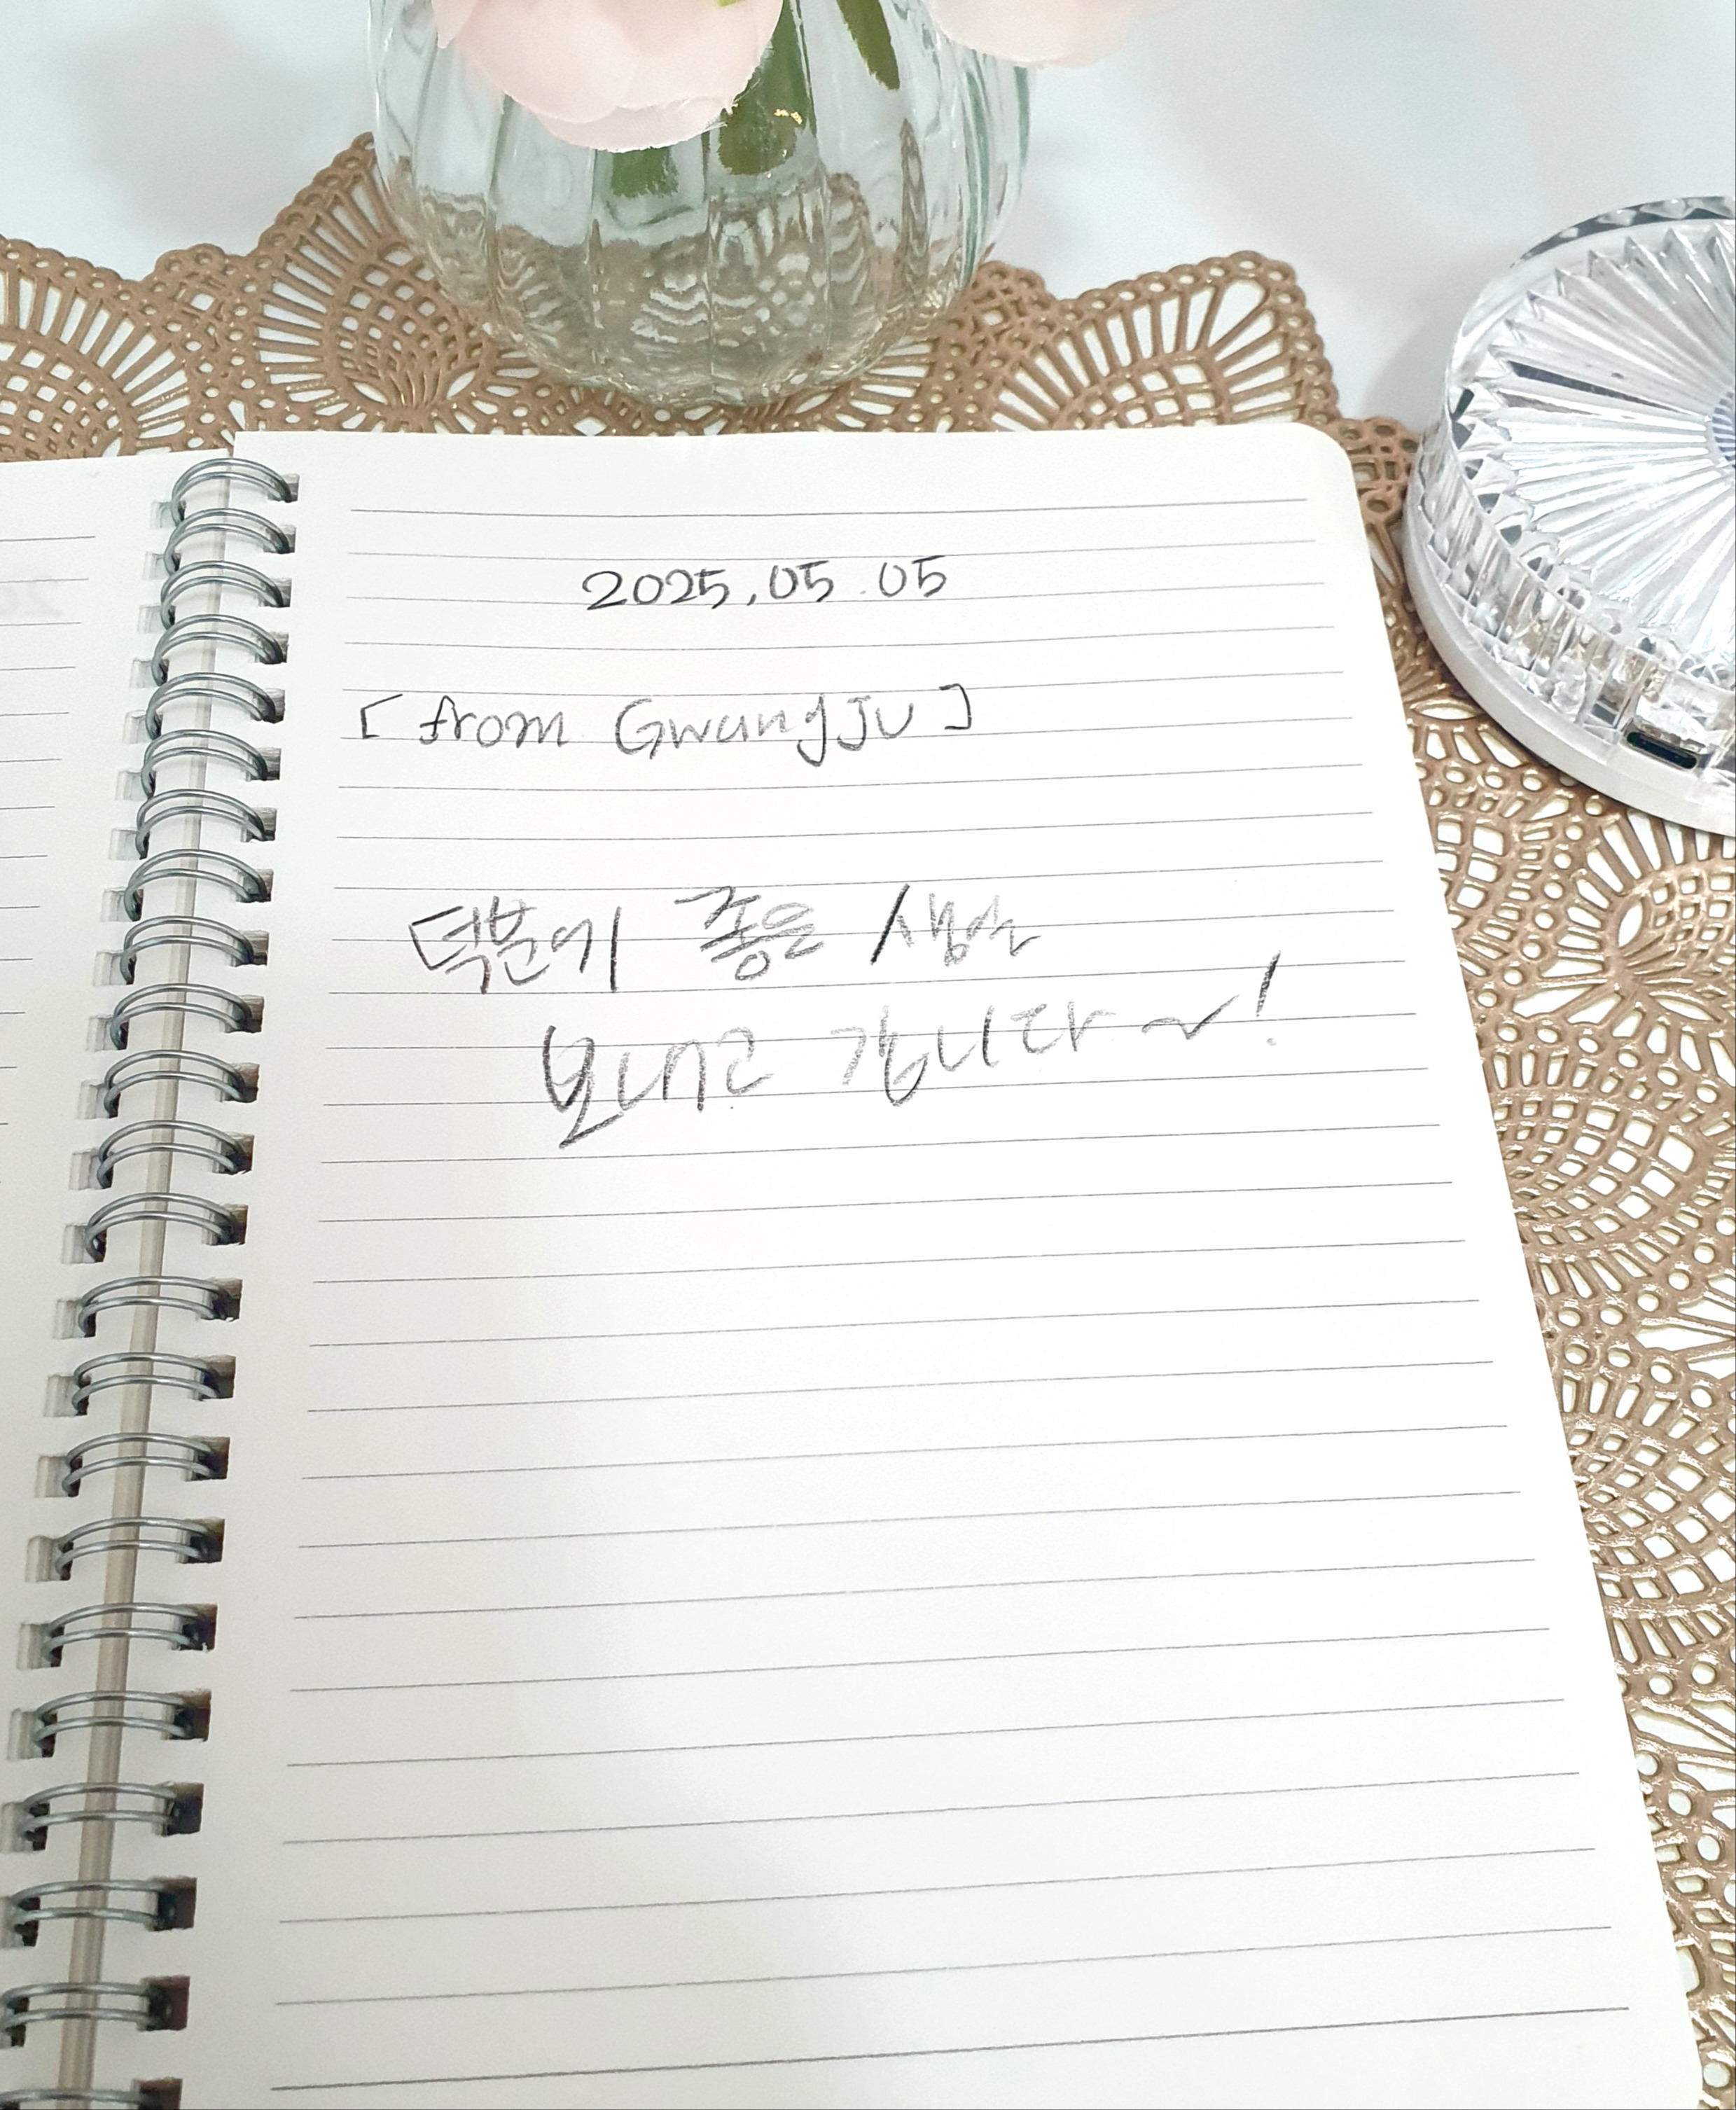 2025.05.05
[from Gwangju]
덕분에 좋은
보내고 갑니다~!